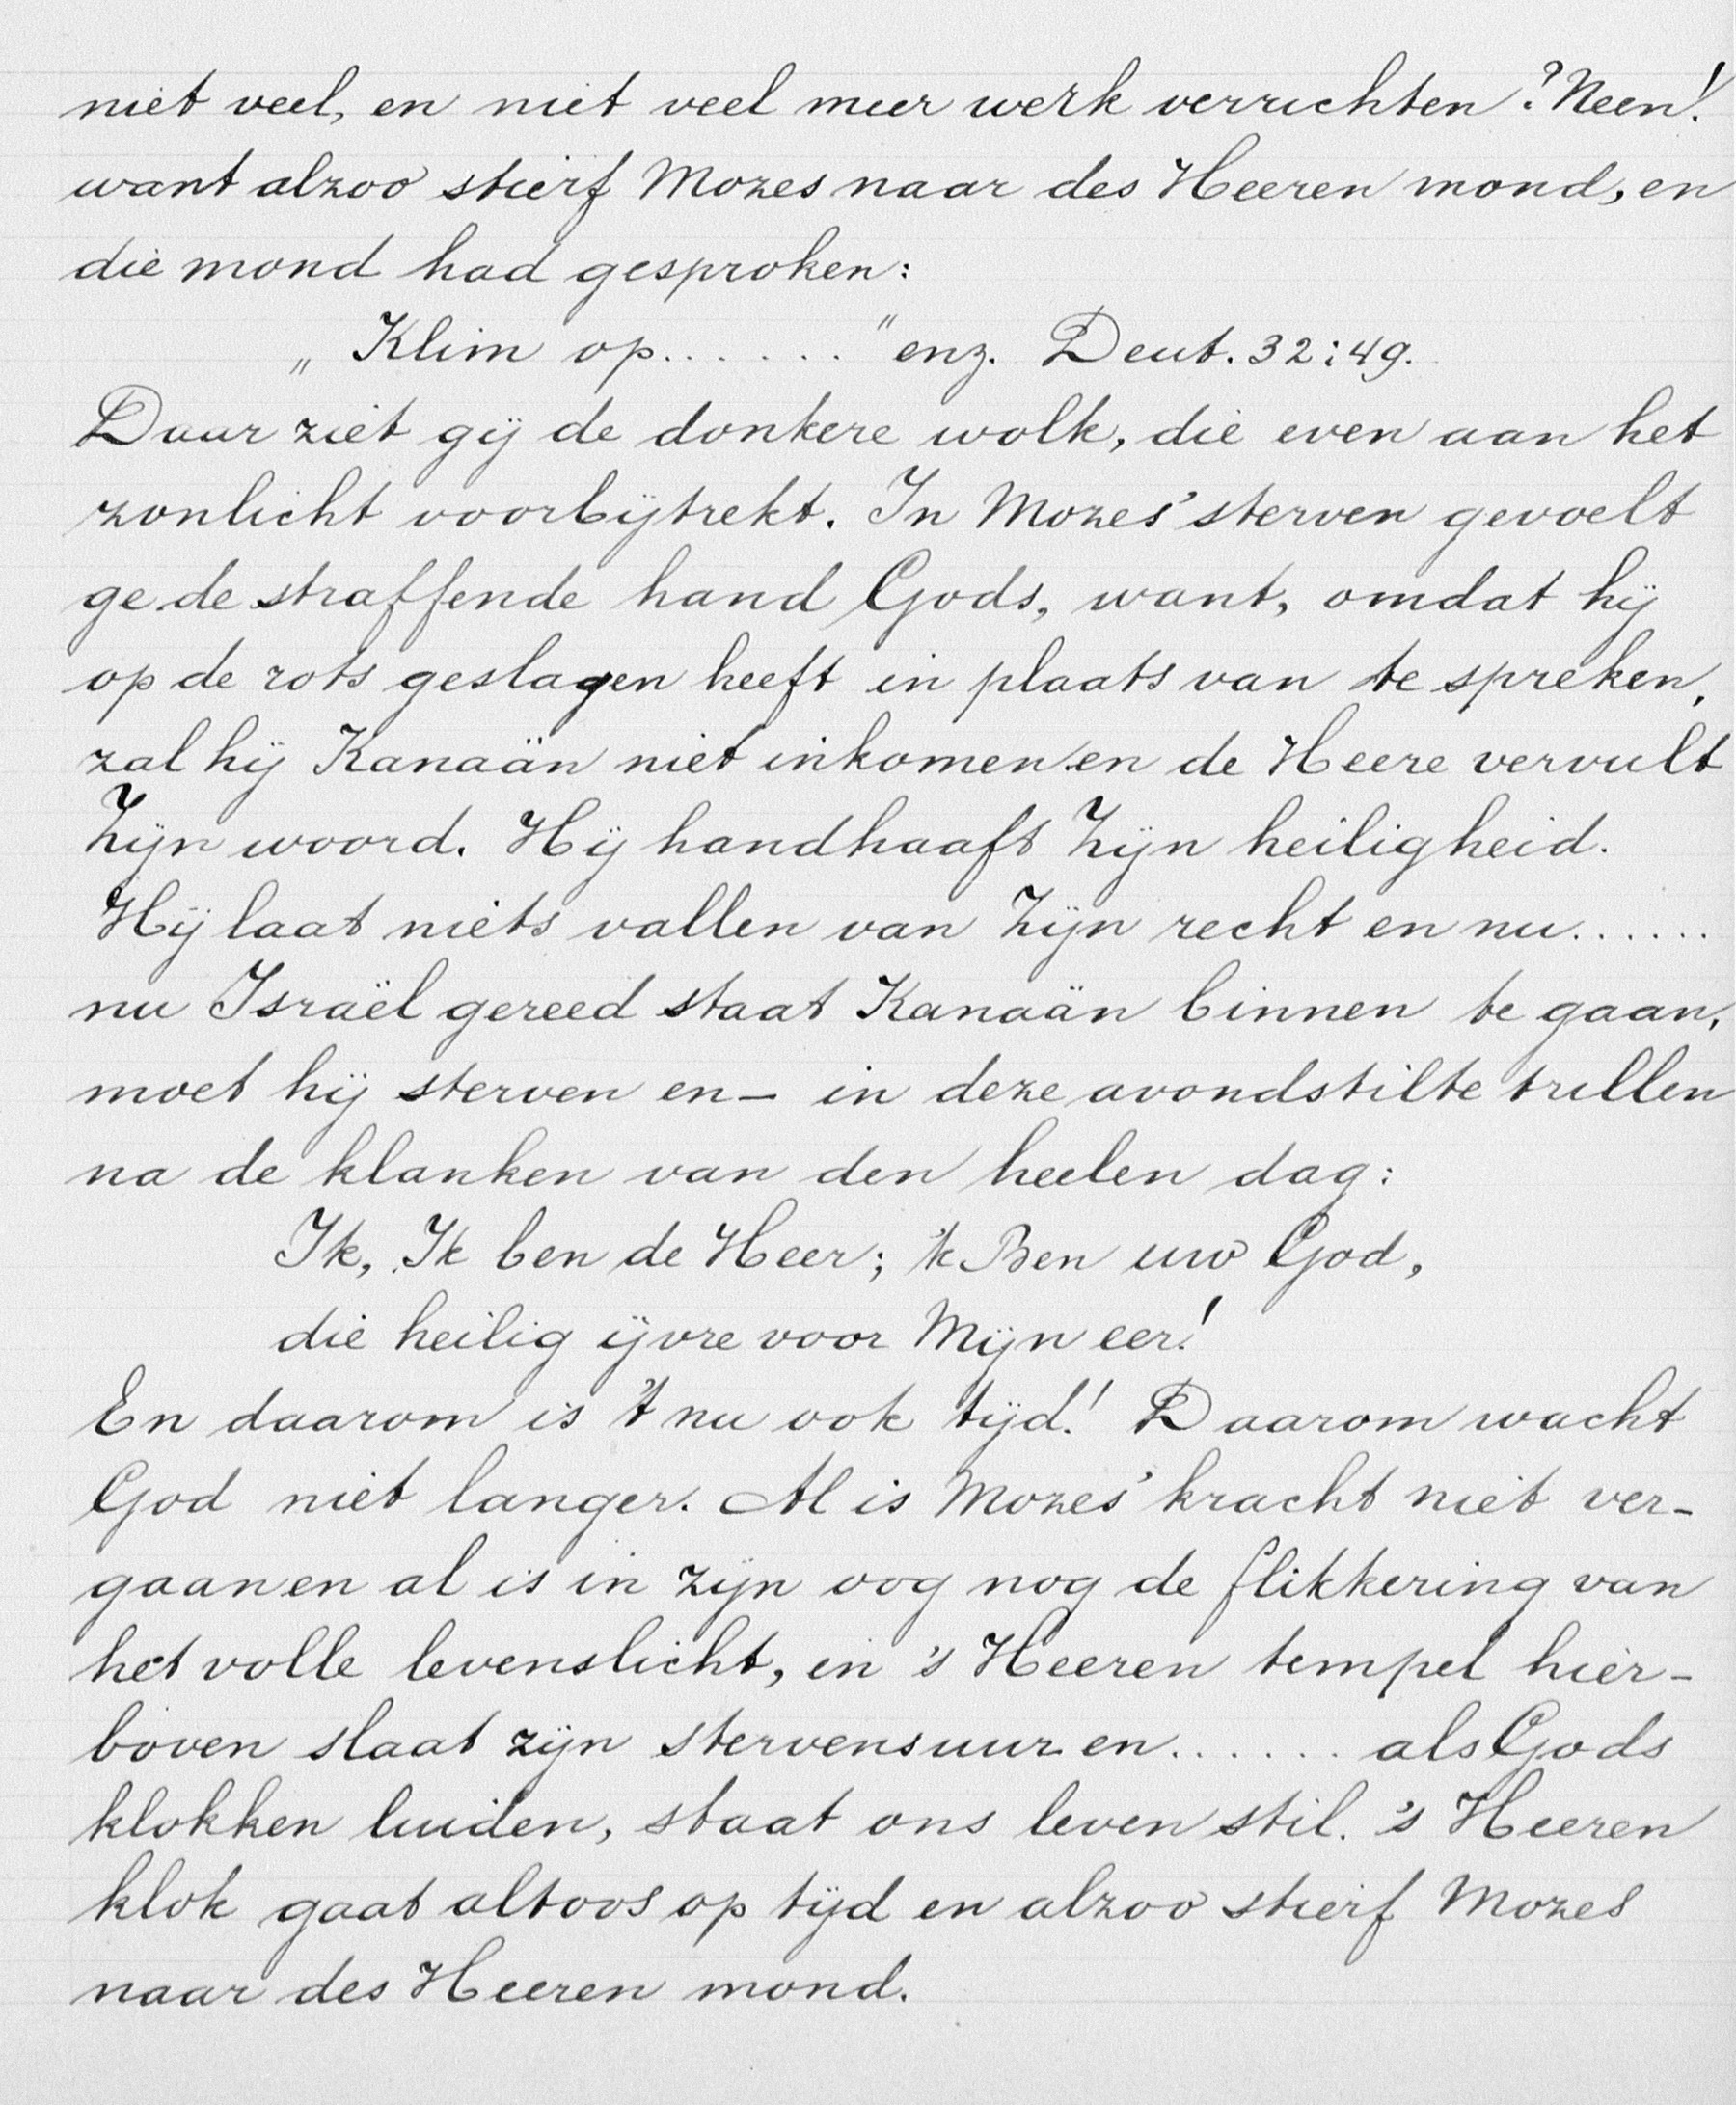 niet veel, en niet veel meer werk verrichten? Neen!
want alzoo stierf Mozes naar des Heeren mond, en
die mond had gesproken:
„ Klim op. . . . . . ” enz. Deut. 32:49.
Daar ziet gij de donkere wolk, die even aan het
zonlicht voorbijtrekt. In Mozes' sterven gevoelt
ge de straffende hand Gods, want, omdat hij
op de rots geslagen heeft in plaats van te spreken,
zal hij Kanaän niet inkomen en de Heere vervult
Zijn woord. Hij handhaaft Zijn heiligheid.
Hij laat niets vallen van Zijn recht en nu......
nu Israël gereed staat Kanaän binnen te gaan,
moet hij sterven en – in deze avondstilte trillen
na de klanken van den heelen dag:
Ik, Ik ben de Heer; 'k Ben uw God,
die heilig ijvre voor Mijn eer!
En daarom is 't nu ook tijd! Daarom wacht
God niet langer. Al is Mozes' kracht niet ver-
gaan en al is in zijn oog nog de flikkering van
het volle levenslicht, in 's Heeren tempel hier-
boven slaat zijn stervensuur en...... als Gods
klokken luiden, staat ons leven stil. 's Heeren
klok gaat altoos op tijd en alzoo stierf Mozes
naar des Heeren mond.